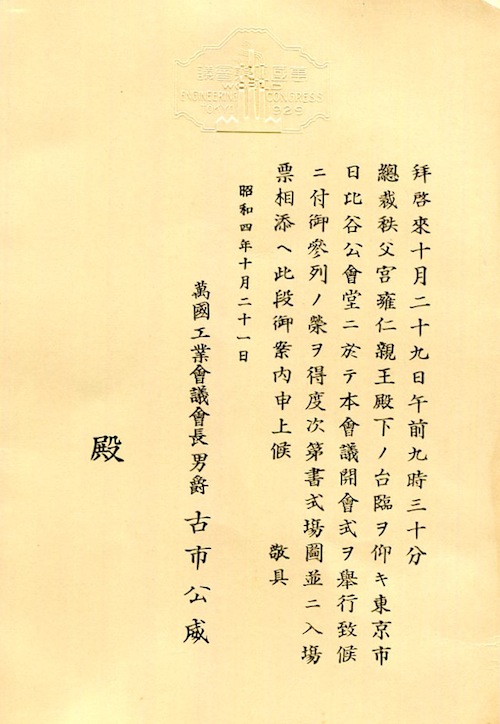 萬國工業會議
WORLD
ENGINEERING CONGRESS
TOKYO 1929
拜啓來十月二十九日午前九時三十分
總裁秩父宮雍仁親王殿下ノ台臨ヲ仰キ東京市
日比谷公會堂ニ於テ本會議開會式ヲ舉行致候
ニ付御參列ノ榮ヲ得度次第書式場圖並ニ入場
票相添ヘ此段御案內申上候 敬具
昭和四年十月二十一日
萬國工業會議會長男爵 古市公威
殿